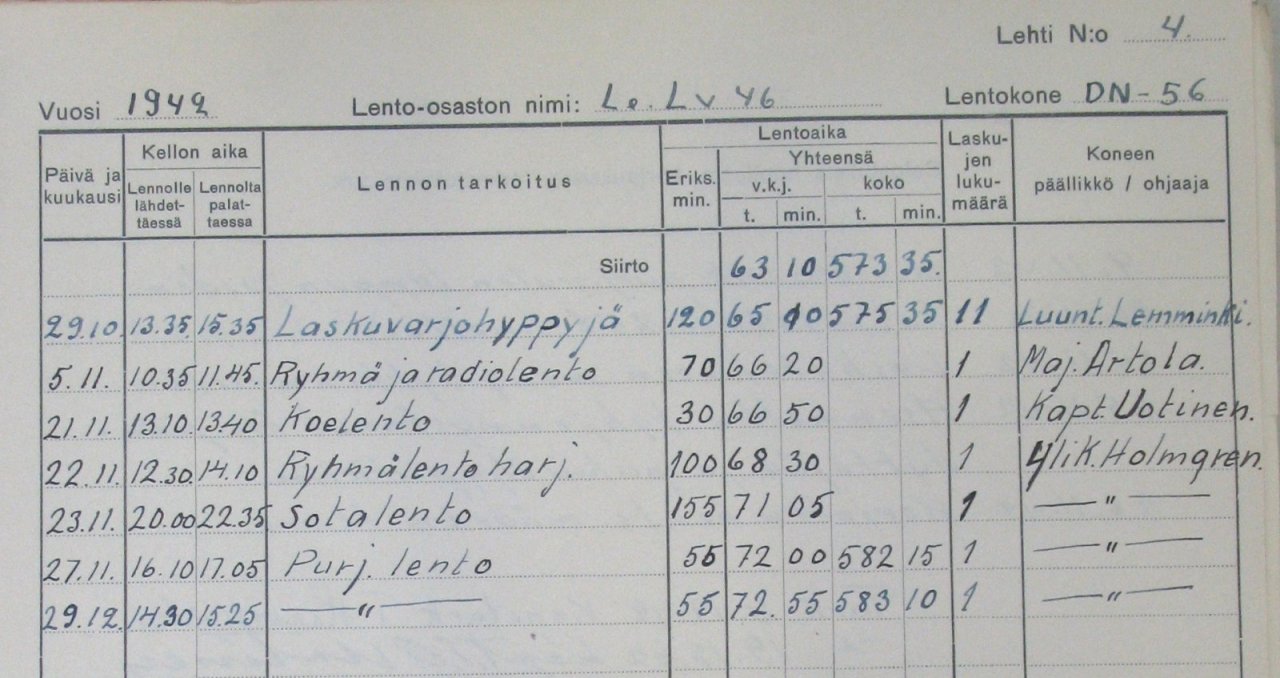 Lehti N:o 4.
Vuosi 1942 Lento-osaston nimi: Le. Lv 46 Lentokone DN-56
Päivä ja kuukausi Kellon aika Lennolle lähdet-täessä Lennolta palat-taessa Lennon tarkoitus Eriks. min. Lentoaika Yhteensä v.k.j. t. min. koko t. min. Lasku-jen luku-määrä Koneen päällikkö / ohjaaja
Siirto 63 10 573 35.
29.10. 13.35. 15.35 Laskuvarjohyppyjä 120 65 10 575 35 11 Luunt. Lemminki.
5.11. 10.35 11.45. Ryhmä ja radiolento 70 66 20 1 Maj. Artola.
21.11. 13.10 13.40 Koelento 30 66 50 1 Kapt. Uotinen.
22.11. 12.30 14.10 Ryhmälento harj. 100 68 30 1 YliK. Holmgren.
23.11. 20.00 22.35 Sotalento 155 71 05 1 —〃—
27.11. 16.10 17.05 Purj. lento 55 72 00 582 15 1 —〃—
29.12. 14.30 15.25 —〃— 55 72. 55 583 10 1 —〃—